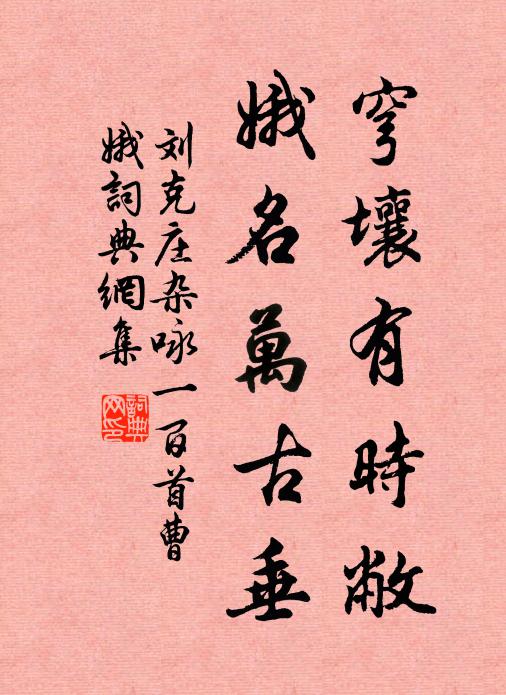 穹壤有時敝
娥名萬古垂
刘克庄杂咏一百首曹
娥詞典網集
詞典網印